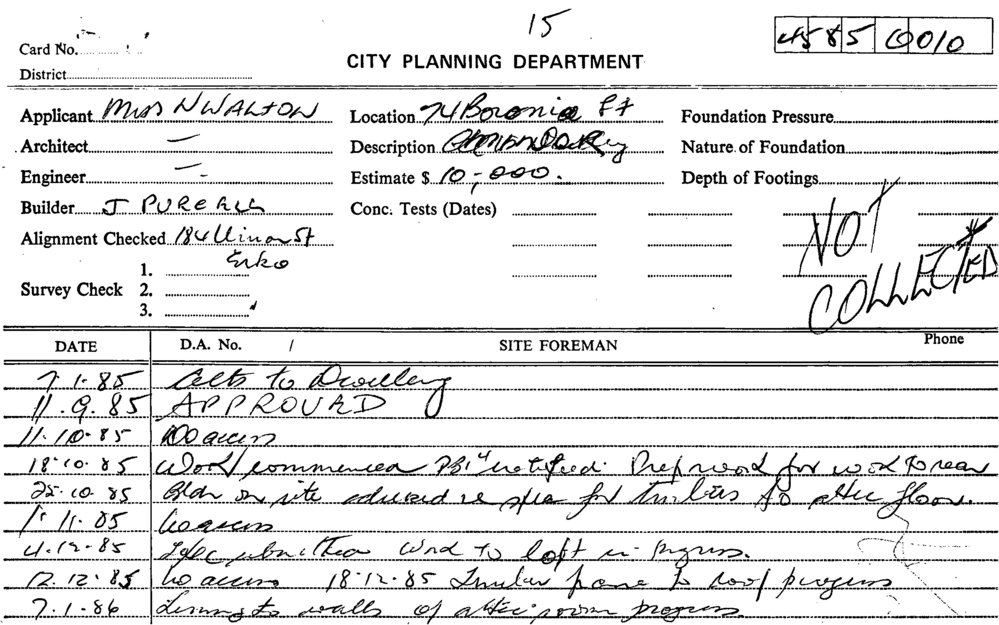 15
45 85 0010
Card No.
CITY PLANNING DEPARTMENT
District
Applicant Miss N WALTON
Location 74 Boronia St
Foundation Pressure
Architect —
Description
Nature of Foundation
Engineer —
Estimate $ 10,000.
Depth of Footings
Builder J PURCELL
Conc. Tests (Dates)
Alignment Checked 184 St
Erko
NOT
COLLECTED
1.
Survey Check 2.
3.
DATE D.A. No. / SITE FOREMAN Phone
7.1.85 Alts to Dwelling
11.9.85 APPROVED
11.10.85 No access
18.10.85 Work commenced notified. Prep work for work to rear
25.10.85 Bldr on site advised re spec for timbers to attic floor.
1.11.85 No access
4.12.85 submitted Work to loft in progress.
12.12.85 No access 18.12.85 Similar frame to roof progress
7.1.86 Lining to walls of attic room progress.